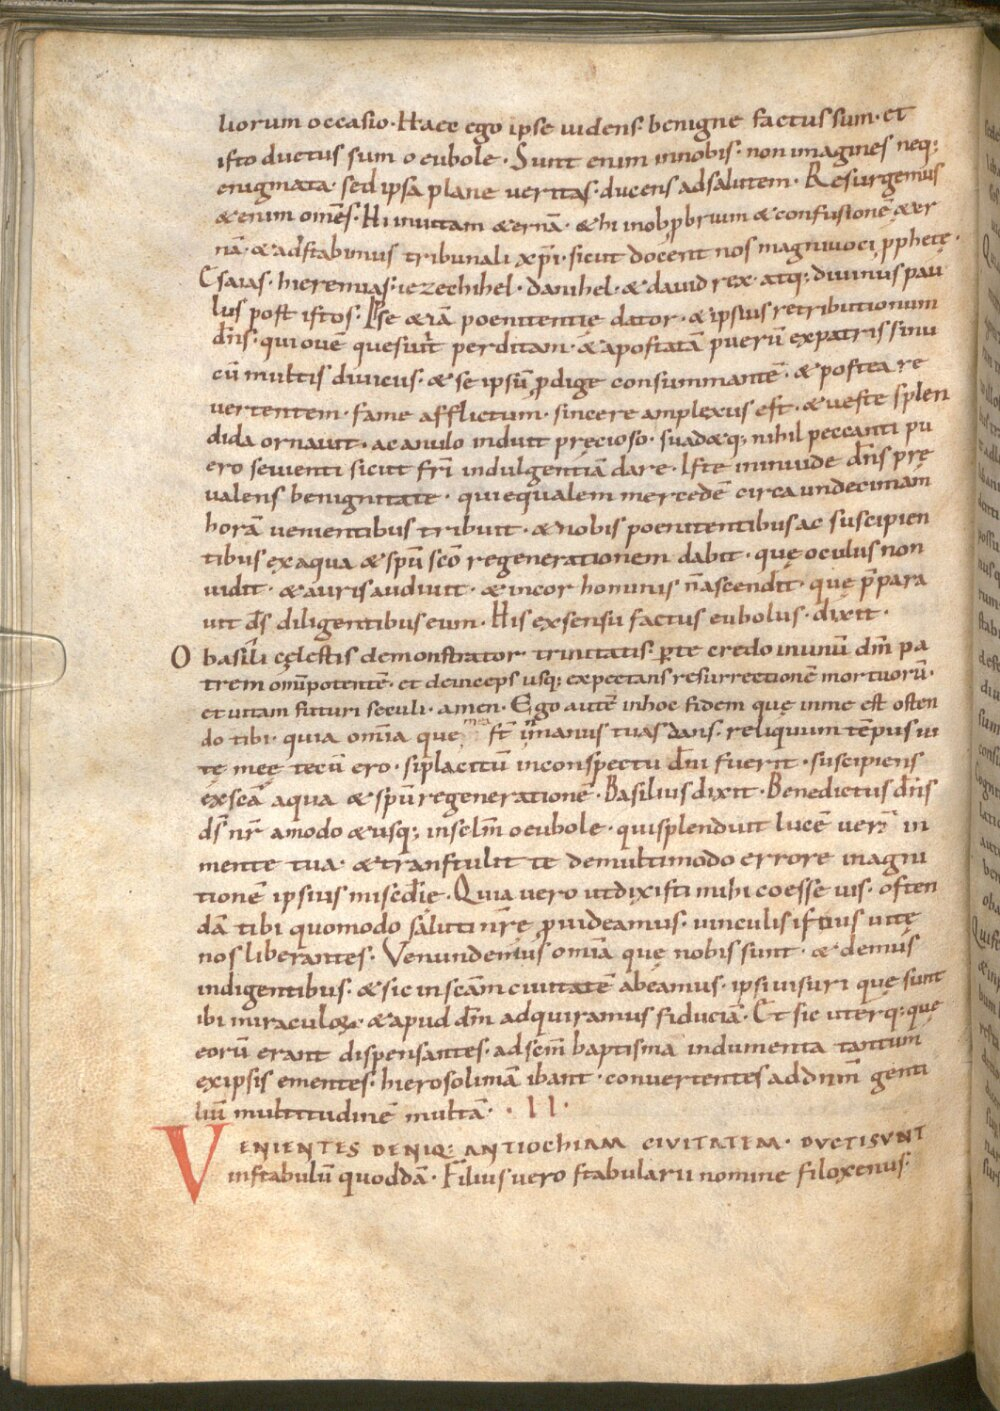 liorum occasio· Haec ego ipse uidens· benigne factus sum· et
isto ductus sum o eubole· Sunt enim innobis· non imagines neq;
enigmata· sed ipsa plane ueritas· ducens adsalutem· Resurgemus
&enim om̄es· Hi inuitam &ernā· & hi inobp̱brium & confusionē &er
nā· & adstabimus tribunali xp̄i· sicut docent nos magniuoci p̱phetę·
Esaias· hieremias· iezechihel· danihel· & dauid rex· atq; diuinus pau
lus post istos· Ipse &iā poenitentię dator· & ipsius retributionum
dn̄s· qui ouē quesiuit perditam· & apostatā puerū expatris sinu
cū multis diuiciis· & se ipsū p̱dige consummantē· & postea re
uertentem· fame afflictum· sincere amplexus est· & ueste splen
dida ornauit· ac anulo induit pręcioso· suad&q; nihil peccanti pu
ero seuienti sicut fr̄i indulgentiā dare· Iste ininuide dn̄s prę
ualens benignitate· qui equalem mercedē circa undecimam
horā uenientibus tribuit· & nobis poenitentibus ac suscipien
tibus exaqua & spū scō regenerationem dabit· quę oculus non
uidit· & auris audiuit· & incor hominis n̄ ascendit· quę p̄para
uit ds̄ diligentibus eum· His exsensu factus eubolus· dixit·
O basili cęlestis demonstrator trinitatis· ꝑte credo inunū dm̄ pa
trem omīpotentē· et deinceps usq; expectans resurrectionē mortuorū·
et uitam futuri seculi· amen· Ego autē inhoc fidem quę inme est osten
do tibi· quia om̄ia que mea st̄ inmanus tuas dans· reliquum tēpus ui
tę meę tecū ero· siplacitū inconspectu dn̄i fuerit· suscipiens
exscā aqua & spū regenerationē· Basilius dixit· Benedictus dn̄s
ds̄ nr̄ amodo &usq; inselm̄ o eubole· quisplenduit lucē uerā in
mente tua· & transtulit te demultimodo errore inagni
tionē ipsius misc̄die· Quia uero utdixisti mihi coesse uis· osten
dā tibi quomodo saluti nr̄ę p̱uideamus· uinculis istius uitę
nos liberantes· Venundemus om̄ia quę nobis sunt· & demus
indigentibus· & sic inscām ciuitatē abeamus· ipsi uisuri quę sunt
ibi miraculose· & apud dm̄ adquiramus fiduciā· Et sic uterq; quę
eorū erant dispensantes· ad scm̄ baptisma indumenta tantum
exipsis ementes· hierosolimā ibant· conuertentes addnm̄ genti
liū multitudinē multā· · II·
VENIENTES DENIQ; ANTIOCHIAM CIVITATEM· DVCTISVNT
instabulū quoddā· Filius uero stabularii nomine filoxenus·